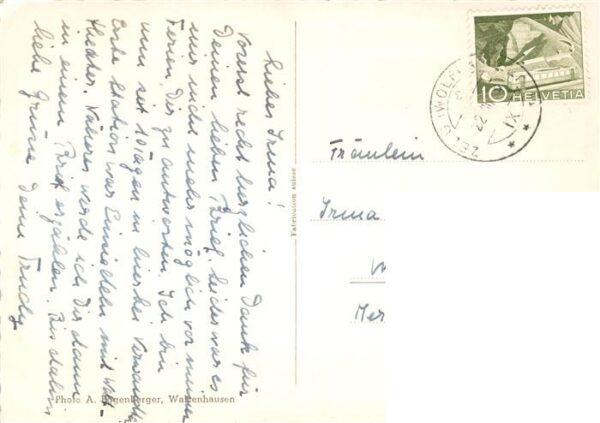 Liebes Irma!
Vorerst recht herzlichen Dank für
Deinen lieben Brief. Leider war es
mir nicht mehr möglich vor meinen
Ferien Dir zu antworten. Ich bin
nun seit 10 Tagen in hier bei Verwandten
Erste Station war Einsiedeln mit Welt-
theater. Näheres werde ich Dir dann
in einem Brief erzählen. Bis dahin
liebe Grüsse Deine Trudy
Photo A. Eigenberger, Waltenhausen
Fabrication suisse
10 HELVETIA
ZELL (WOLF
22
IX
Fräulein
Irma